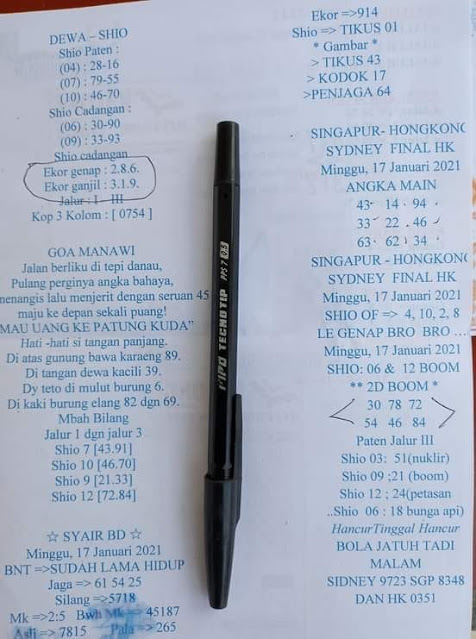 DEWA – SHIO
Shio Paten :
(04) : 28-16
(07) : 79-55
(10) : 46-70
Shio Cadangan :
(06) : 30-90
(09) : 33-93
Shio cadangan
Ekor genap : 2.8.6.
Ekor ganjil : 3.1.9.
Jalur : I - III
Kop 3 Kolom : [ 0754 ]
GOA MANAWI
Jalan berliku di tepi danau,
Pulang perginya angka bahaya,
menangis lalu menjerit dengan seruan 45
maju ke depan sekali puang!
MAU UANG KE PATUNG KUDA”
Hati -hati si tangan panjang.
Di atas gunung bawa karaeng 89.
Di tangan dewa kacili 39.
Dy teto di mulut burung 6.
Di kaki burung elang 82 dgn 69.
Mbah Bilang
Jalur 1 dgn jalur 3
Shio 7 [43.91]
Shio 10 [46.70]
Shio 9 [21.33]
Shio 12 [72.84]
☆ SYAIR BD ☆
Minggu, 17 Januari 2021
BNT =>SUDAH LAMA HIDUP
Jaga => 61 54 25
Silang =>5718
Mk =>2:5 Bwh Mk => 45187
Asli => 7815 Pala => 265
Ekor =>914
Shio => TIKUS 01
* Gambar *
> TIKUS 43
> KODOK 17
>PENJAGA 64
SINGAPUR- HONGKONG
SYDNEY FINAL HK
Minggu, 17 Januari 2021
ANGKA MAIN
43 14 94
33 22 46
63 62 34
SINGAPUR - HONGKONG
SYDNEY FINAL HK
Minggu, 17 Januari 2021
SHIO OF => 4, 10, 2, 8
LE GENAP BRO BRO ...
Minggu, 17 Januari 2021
SHIO: 06 & 12 BOOM
** 2D BOOM *
30 78 72
54 46 84
Paten Jalur III
Shio 03: 51(nuklir)
Shio 09 ;21 (boom)
Shio 12 ; 24(petasan
..Shio 06 : 18 bunga api)
HancurTinggal Hancur
BOLA JATUH TADI
MALAM
SIDNEY 9723 SGP 8348
DAN HK 0351
MPO TECNOTIP PPS 7 0.5